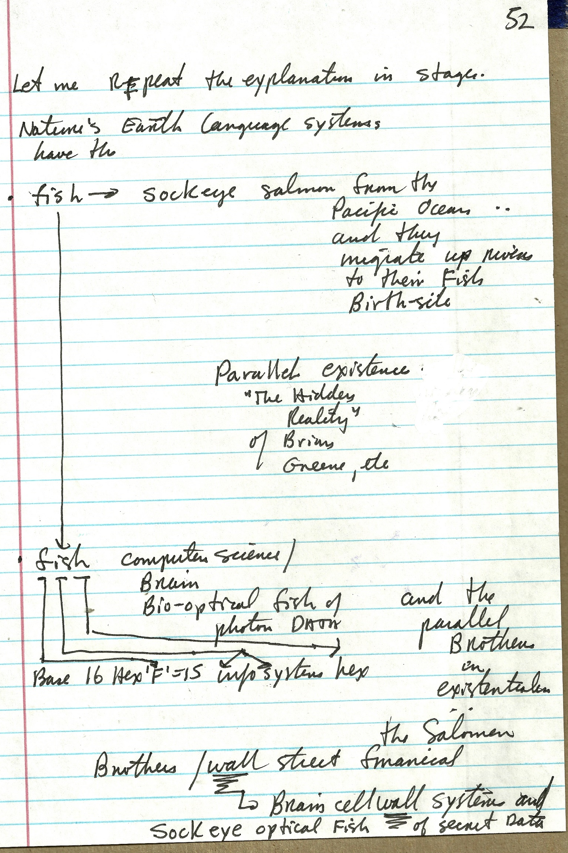 52
Let me Repeat the explanation in stages.
Nature's Earth Language systems
have the
• fish → sockeye salmon from the
Pacific Ocean ..
and they
migrate up rivers
to their Fish
Birth-site
Parallel existence.
"The Hidden
Reality"
of Brian
Greene, etc
• fish computer science /
Brain
Bio-optical fish of
photon DATA
and the
parallel
Brothers
in
existentialism
Base 16 Hex 'F'=15 info systems hex
the Salomen
Brothers / wall street financial
Brain cell wall systems and
Sockeye optical Fish of secret Data